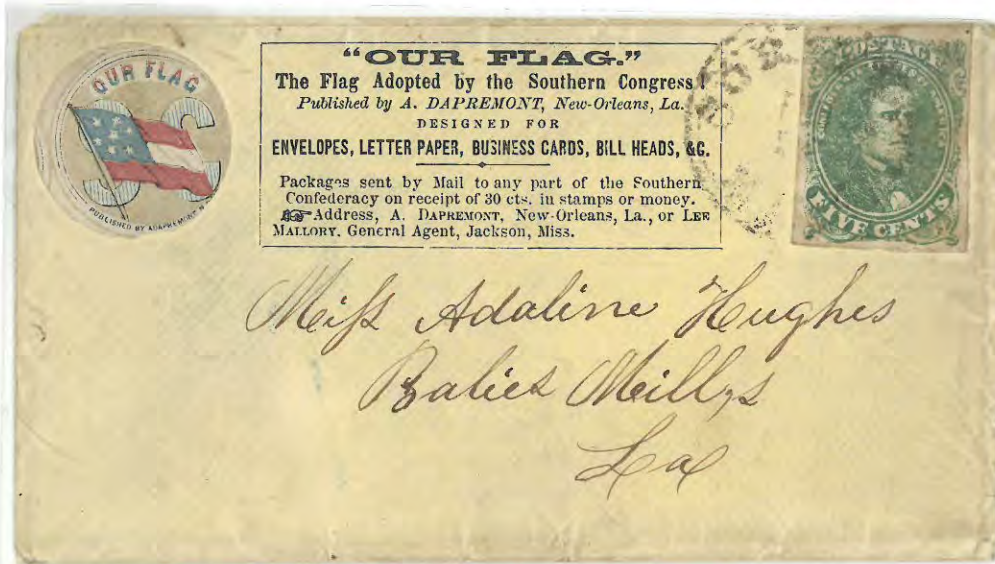 OUR FLAG
PUBLISHED BY A DAPREMONT, N.
"OUR FLAG."
The Flag Adopted by the Southern Congress!
Published by A. DAPREMONT, New-Orleans, La.
DESIGNED FOR
ENVELOPES, LETTER PAPER, BUSINESS CARDS, BILL HEADS, &C.
Packages sent by Mail to any part of the Southern
Confederacy on receipt of 30 cts. in stamps or money.
Address, A. DAPREMONT, New-Orleans, La., or LEE
MALLORY, General Agent, Jackson, Miss.
POSTAGE
FIVE CENTS
Miss Adaline Hughes
Balies Mills
La